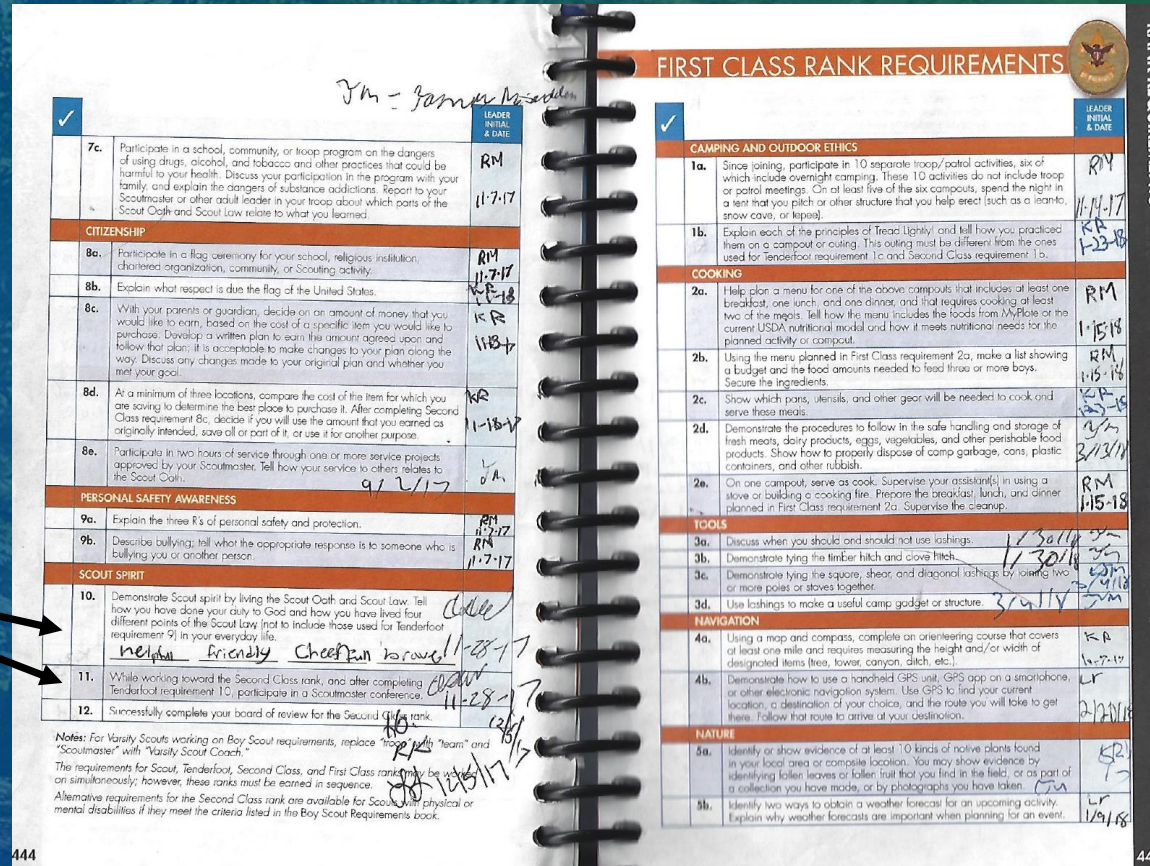 ✓
LEADER
INITIAL
& DATE
7c. Participate in a school, community, or troop program on the dangers
of using drugs, alcohol, and tobacco and other practices that could be
harmful to your health. Discuss your participation in the program with your
family, and explain the dangers of substance addictions. Report to your
Scoutmaster or other adult leader in your troop about which parts of the
Scout Oath and Scout Law relate to what you learned.
RM
11-7-17
CITIZENSHIP
8a. Participate in a flag ceremony for your school, religious institution,
chartered organization, community, or Scouting activity.
RM
11-7-17
8b. Explain what respect is due the flag of the United States.
KR
8c. With your parents or guardian, decide on an amount of money that you
would like to earn, based on the cost of a specific item you would like to
purchase. Develop a written plan to earn the amount agreed upon and
follow that plan; it is acceptable to make changes to your plan along the
way. Discuss any changes made to your original plan and whether you
met your goal.
KR
8d. At a minimum of three locations, compare the cost of the item for which you
are saving to determine the best place to purchase it. After completing Second
Class requirement 8c, decide if you will use the amount that you earned as
originally intended, save all or part of it, or use it for another purpose.
KR
11-18-17
8e. Participate in two hours of service through one or more service projects
approved by your Scoutmaster. Tell how your service to others relates to
the Scout Oath.
9/2/17
Jm
PERSONAL SAFETY AWARENESS
9a. Explain the three R's of personal safety and protection.
RM
11-7-17
9b. Describe bullying; tell what the appropriate response is to someone who is
bullying you or another person.
RM
11-7-17
SCOUT SPIRIT
10. Demonstrate Scout spirit by living the Scout Oath and Scout Law. Tell
how you have done your duty to God and how you have lived four
different points of the Scout Law (not to include those used for Tenderfoot
requirement 9) in your everyday life.
helpful friendly Cheerfull brave 11-28-17
11. While working toward the Second Class rank, and after completing
Tenderfoot requirement 10, participate in a Scoutmaster conference.
11-28-17
12. Successfully complete your board of review for the Second Class rank.
12/5/17
Notes: For Varsity Scouts working on Boy Scout requirements, replace "troop" with "team" and
"Scoutmaster" with "Varsity Scout Coach."
The requirements for Scout, Tenderfoot, Second Class, and First Class ranks may be worked
on simultaneously; however, these ranks must be earned in sequence.
Alternative requirements for the Second Class rank are available for Scouts with physical or
mental disabilities if they meet the criteria listed in the Boy Scout Requirements book.
444
FIRST CLASS RANK REQUIREMENTS
✓
LEADER
INITIAL
& DATE
CAMPING AND OUTDOOR ETHICS
1a. Since joining, participate in 10 separate troop/patrol activities, six of
which include overnight camping. These 10 activities do not include troop
or patrol meetings. On at least five of the six campouts, spend the night in
a tent that you pitch or other structure that you help erect (such as a lean-to,
snow cave, or tepee).
RM
11-14-17
1b. Explain each of the principles of Tread Lightly! and tell how you practiced
them on a campout or outing. This outing must be different from the ones
used for Tenderfoot requirement 1c and Second Class requirement 1b.
KR
1-23-18
COOKING
2a. Help plan a menu for one of the above campouts that includes at least one
breakfast, one lunch, and one dinner, and that requires cooking at least
two of the meals. Tell how the menu includes the foods from MyPlate or the
current USDA nutritional model and how it meets nutritional needs for the
planned activity or campout.
RM
1-15-18
2b. Using the menu planned in First Class requirement 2a, make a list showing
a budget and the food amounts needed to feed three or more boys.
Secure the ingredients.
RM
1-15-18
2c. Show which pans, utensils, and other gear will be needed to cook and
serve these meals.
KR
2d. Demonstrate the procedures to follow in the safe handling and storage of
fresh meats, dairy products, eggs, vegetables, and other perishable food
products. Show how to properly dispose of camp garbage, cans, plastic
containers, and other rubbish.
3/13/18
2e. On one campout, serve as cook. Supervise your assistant(s) in using a
stove or building a cooking fire. Prepare the breakfast, lunch, and dinner
planned in First Class requirement 2a. Supervise the cleanup.
RM
1-15-18
TOOLS
3a. Discuss when you should and should not use lashings.
1/30/18
3b. Demonstrate tying the timber hitch and clove hitch.
1/30/18
3c. Demonstrate tying the square, shear, and diagonal lashings by joining two
or more poles or staves together.
3d. Use lashings to make a useful camp gadget or structure.
NAVIGATION
4a. Using a map and compass, complete an orienteering course that covers
at least one mile and requires measuring the height and/or width of
designated items (tree, tower, canyon, ditch, etc.).
KR
4b. Demonstrate how to use a handheld GPS unit, GPS app on a smartphone,
or other electronic navigation system. Use GPS to find your current
location, a destination of your choice, and the route you will take to get
there. Follow that route to arrive at your destination.
Lr
2/20/18
NATURE
5a. Identify or show evidence of at least 10 kinds of native plants found
in your local area or campsite location. You may show evidence by
identifying fallen leaves or fallen fruit that you find in the field, or as part of
a collection you have made, or by photographs you have taken.
5b. Identify two ways to obtain a weather forecast for an upcoming activity.
Explain why weather forecasts are important when planning for an event.
Lr
1/9/18